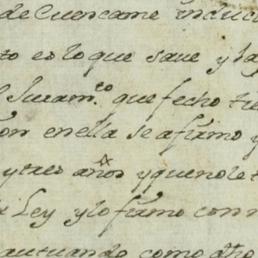 de Cuencame
to es lo que save y la
Juram.to que fecho tie
en ella se afirmo y
y tres años y que no le t
Ley y lo firmo con m
actuando como dho